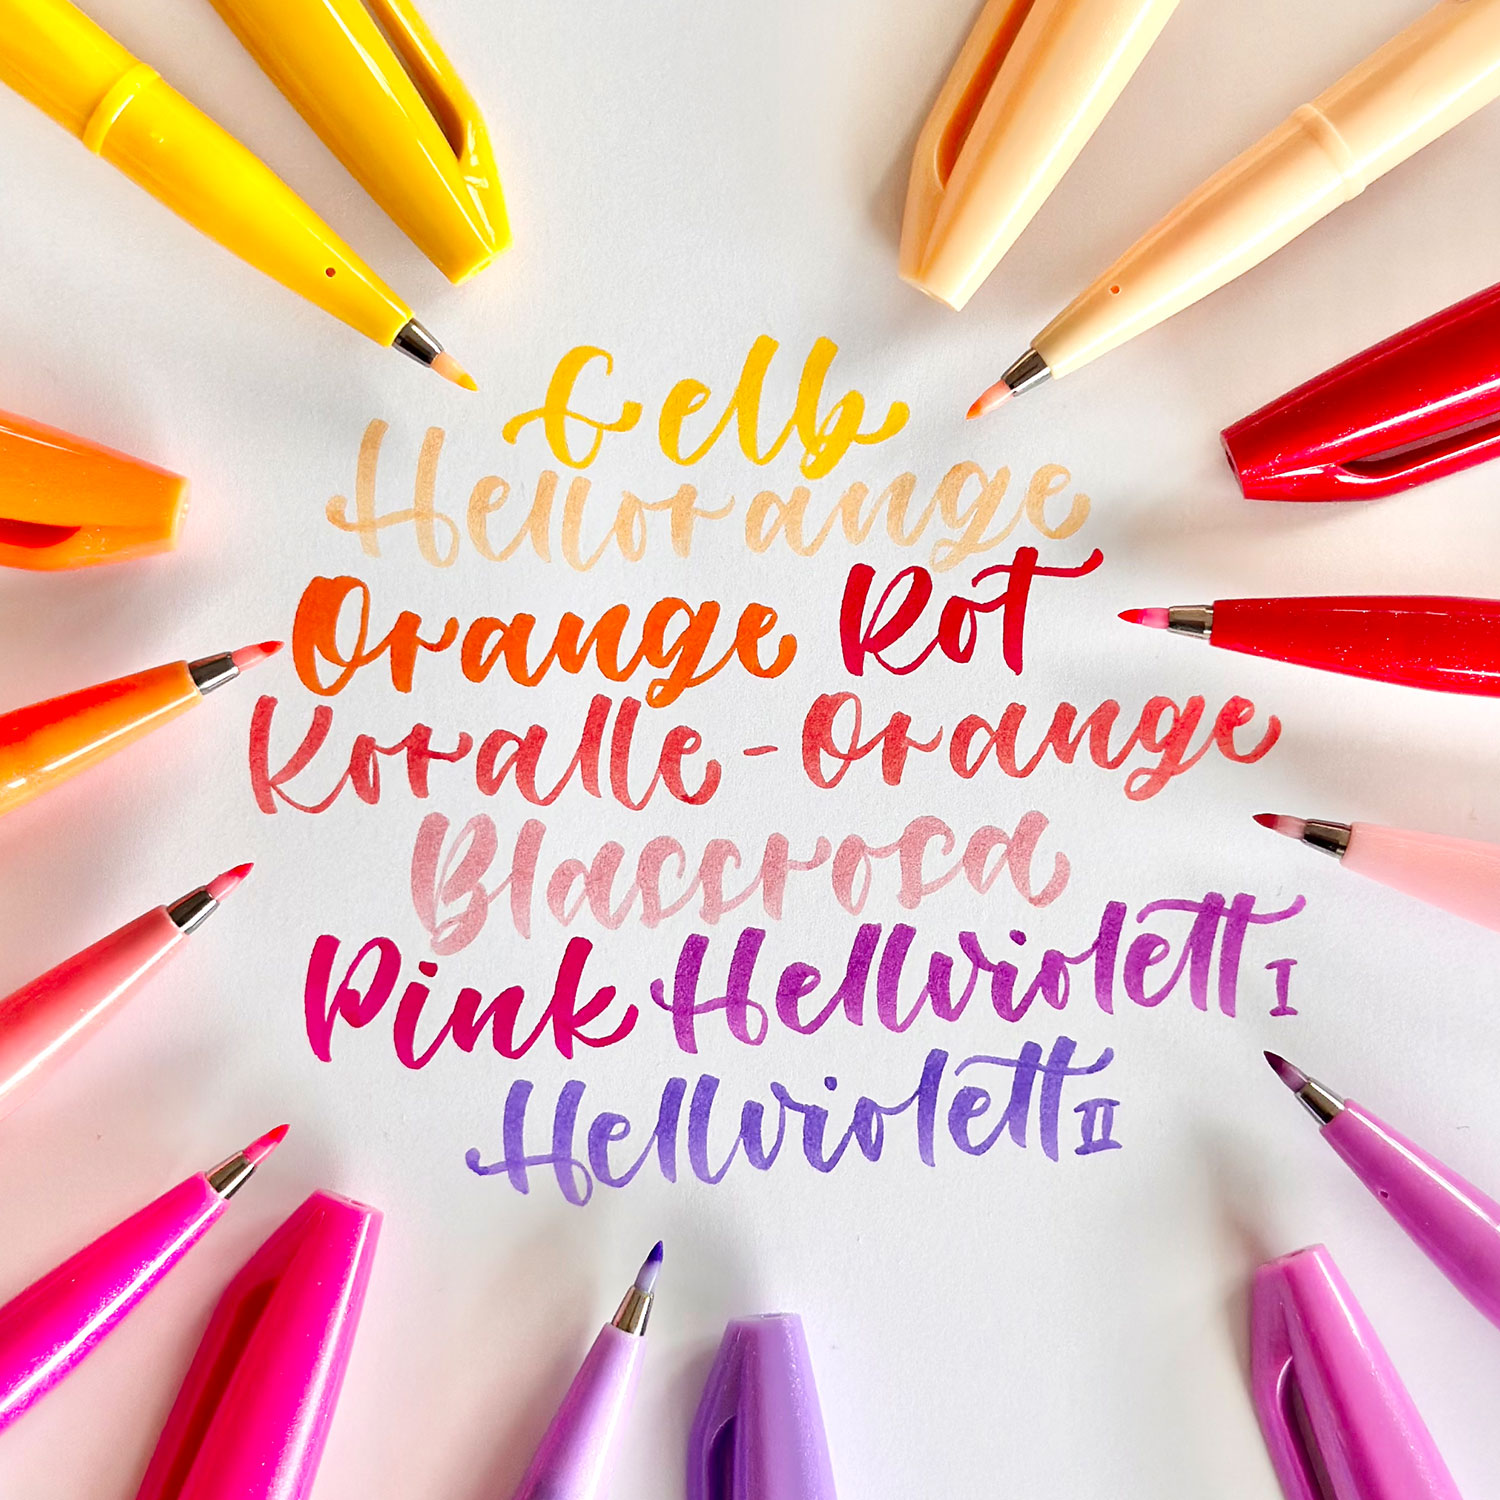 Gelb
Hellorange
Orange Rot
Koralle-Orange
Blassrosa
Pink Hellviolett I
Hellviolett II